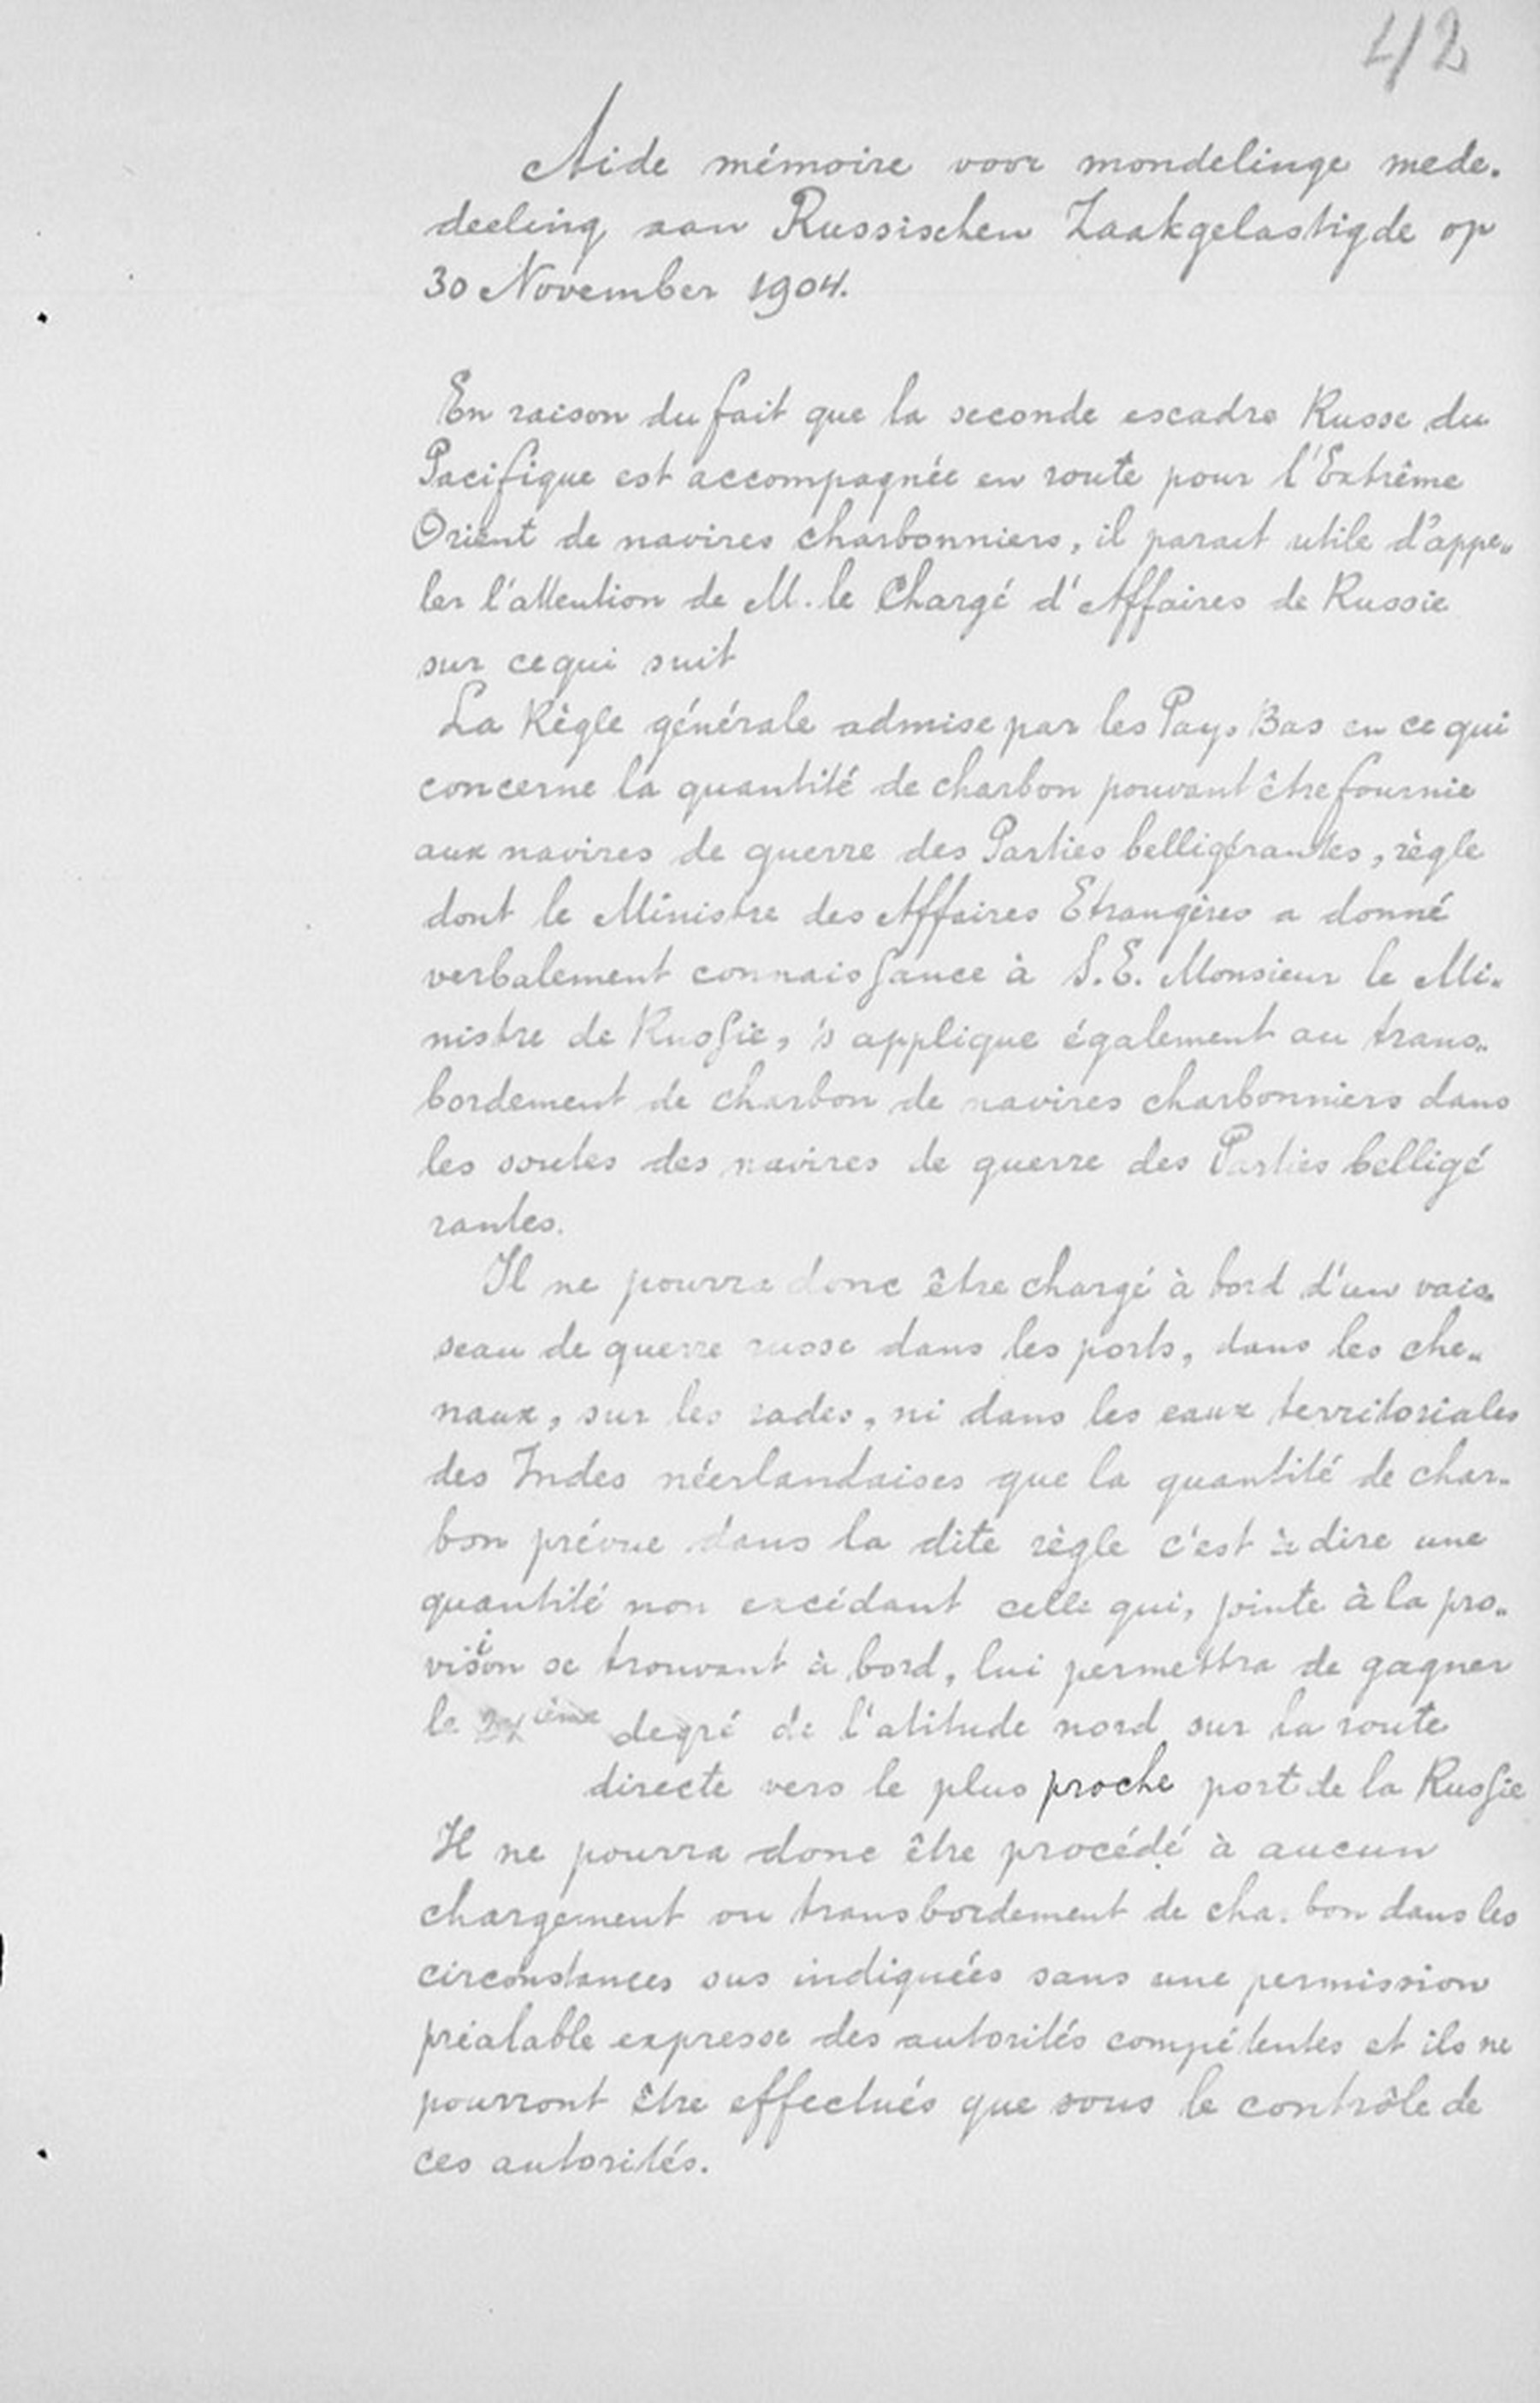 42
Aide mémoire voor mondelinge mede„
deeling aan Russischen Zaakgelastigde op
30 November 1904.
En raison du fait que la seconde escadre Russe du
Pacifique est accompagnée en route pour l'Extrême
Orient de navires charbonniers, il parait utile d'appe„
ler l'attention de M. le Chargé d'Affaires de Russie
sur ce qui suit
La Règle générale admise par les Pays Bas en ce qui
concerne la quantité de charbon pouvant être fournie
aux navires de guerre des Parties belligérantes, règle
dont le Ministre des Affaires Etrangères a donné
verbalement connaissance à S.E. Monsieur le Mi„
nistre de Russie, s'applique également au trans„
bordement de charbon de navires charbonniers dans
les soutes des navires de guerre des Parties belligé
rantes.
Il ne pourra donc être chargé à bord d'un vais„
seau de guerre russe dans les ports, dans les che„
naux, sur les rades, ni dans les eaux territoriales
des Indes néerlandaises que la quantité de char„
bon prévue dans la dite règle c'est à dire une
quantité non excédant celle qui, jointe à la pro„
vision se trouvant à bord, lui permettra de gagner
le degré de l'atitude nord sur la route
directe vers le plus proche port de la Russie
Il ne pourra donc être procédé à aucun
chargement ou transbordement de charbon dans les
circonstances sus indiquées sans une permission
préalable expresse des autorités compétentes et ils ne
pourront être effectués que sous le contrôle de
ces autorités.